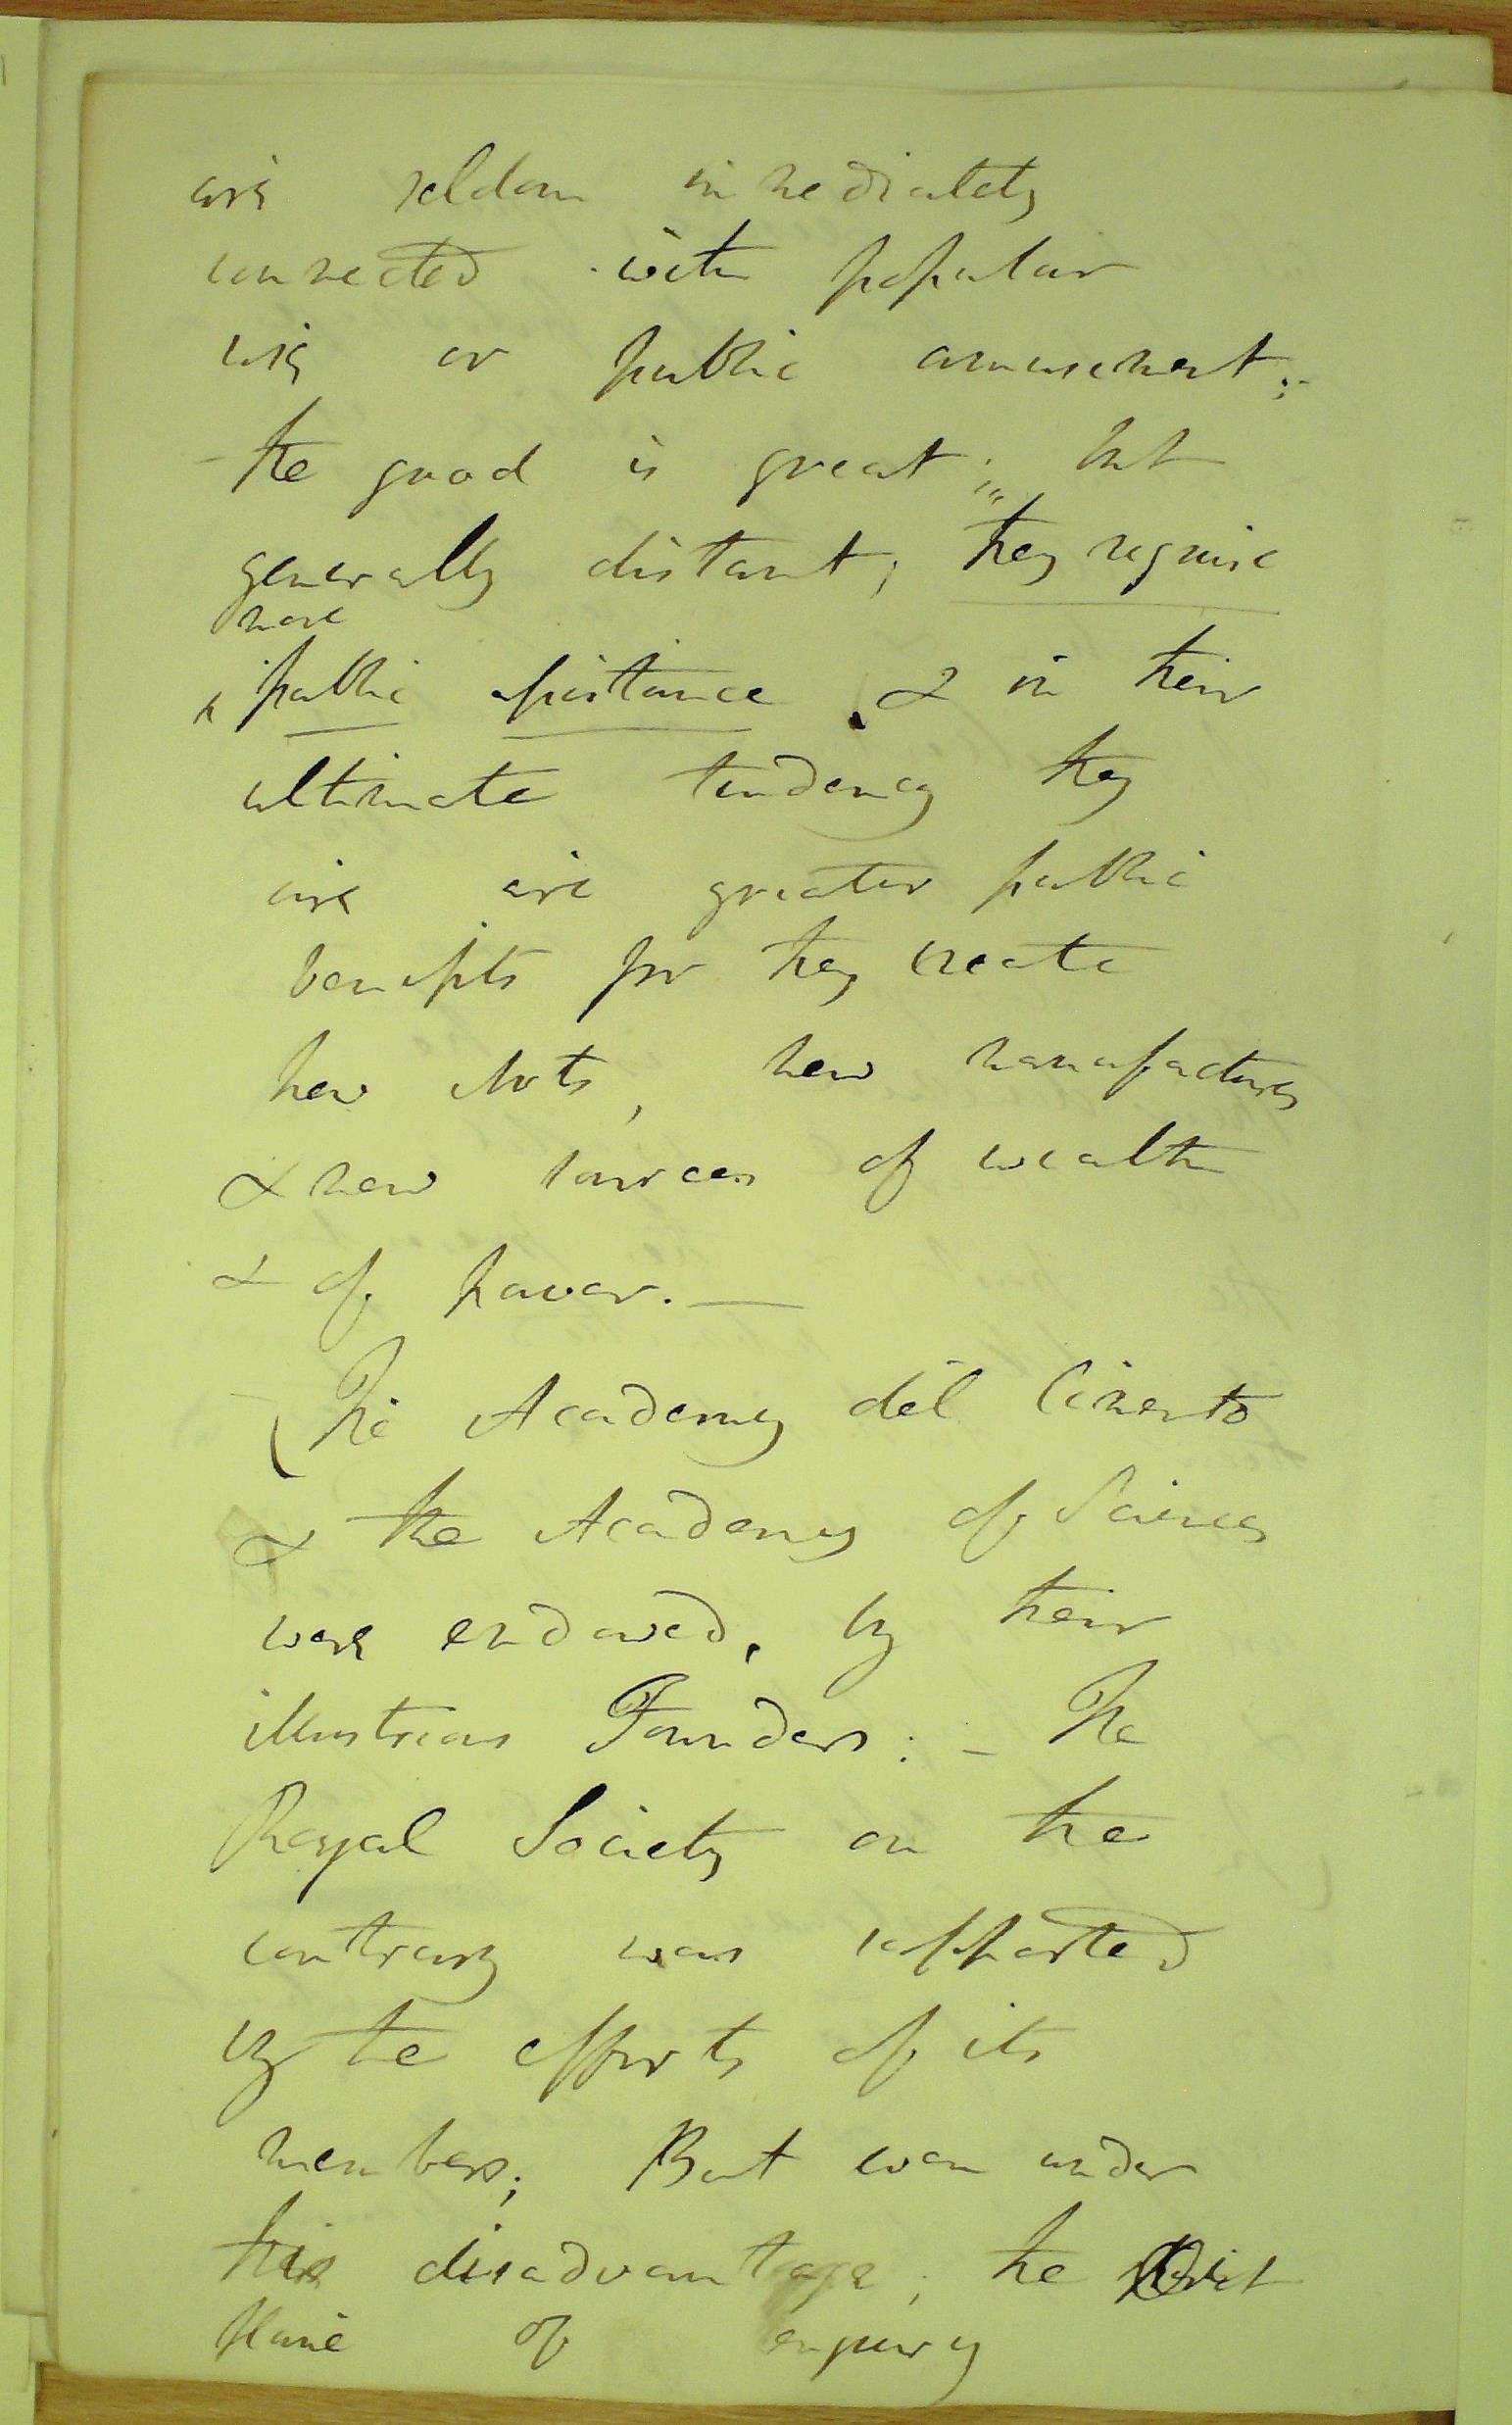 are seldom immediately
connected with popular
use or public amusement;-
- the good is great; but
generally distant; they require
more
public assistance, & in their
ultimate tendency they
are are greater public
benefits for they create
new Arts, new manufactures
& new sources of wealth
& of power. —
- (The Academy del Cimento
& the Academy of Sciences
were endowed, by their
illustrious Founders: - The
Royal Society on the
contrary was supported
by the efforts of its
members; But even under
this disadvantage; the
of enquiry